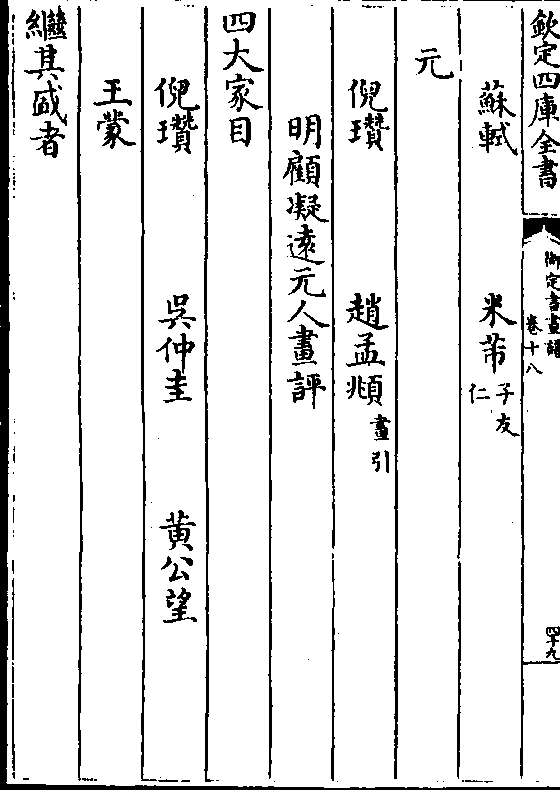 欽定四庫全書
御定書畫譜
卷十八
四十九
蘇軾 米芾子友仁
元
倪瓚 趙孟頫畫引
明顧凝遠元人畫評
四大家目
倪瓚 吳仲圭 黃公望
王蒙
繼其盛者